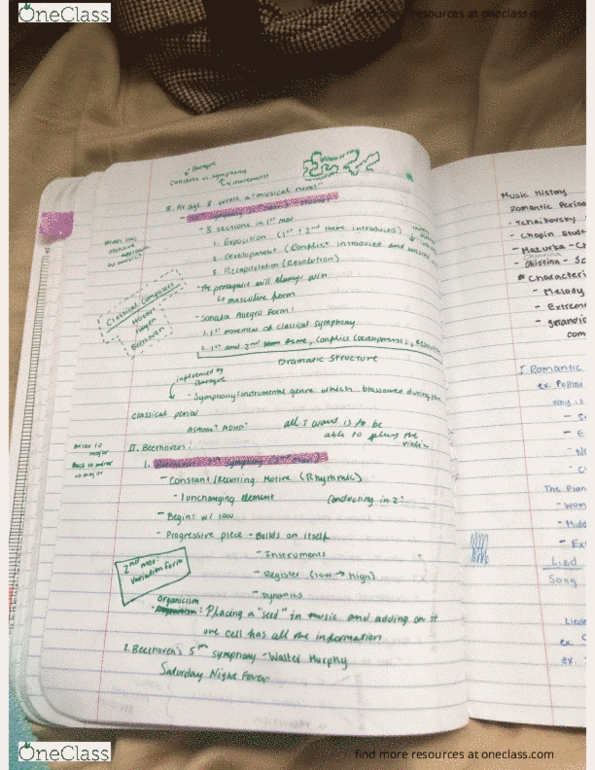 OneClass
find more resources at oneclass.com
Baroque
Concerto vs. Symphony
4 movements
8. At age 8 wrote a "musical novel"
- 3 sections in 1st mov.
1. Exposition (1st & 2nd theme introduced)
2. Development (Conflict introduced and
3. Recapitulation (Resolution)
- The protagonist will always win
↳ masculine form
Classical Composers
Mozart
Haydn
Beethoven
- Sonata Allegro Form:
1. 1st movement of classical symphony
2. 1st and 2nd theme, Conflict (development),
Dramatic Structure
influenced by
Baroque
- Symphony: instrumental genre which blossomed during the
classical period
Asthma? ADHD?
all I want is to be
able to play the
II. Beethoven:
minor to
major
Back to minor
to major
1. Beethoven 5th Symphony (2nd mov.)
- Constant/Recurring Motive (Rhythmic)
- 1 unchanging element
Conducting in 2:
- Begins w/ low
- Progressive piece - Builds on itself
- Instruments
- Register (low → high)
- Dynamics
2nd mov.
Variation Form
organicism
: Placing a "seed" in music and adding on it
one cell has all the information
2. Beethoven's 5th symphony - Walter Murphy
Saturday Night Fever
Music History
Romantic Perio
- Tchaikovsky
- Chopin Stud
- Mazurka - Ch
- Christina - Sc
* Characteri
- Melody
- Extrem
- grandis
com
I. Romantic
ex. Pollini
Why is
The Pian
- Wom
- Midd
- Ex
Lied
Song
Liede
ex.
ex.
OneClass
find more resources at oneclass.com